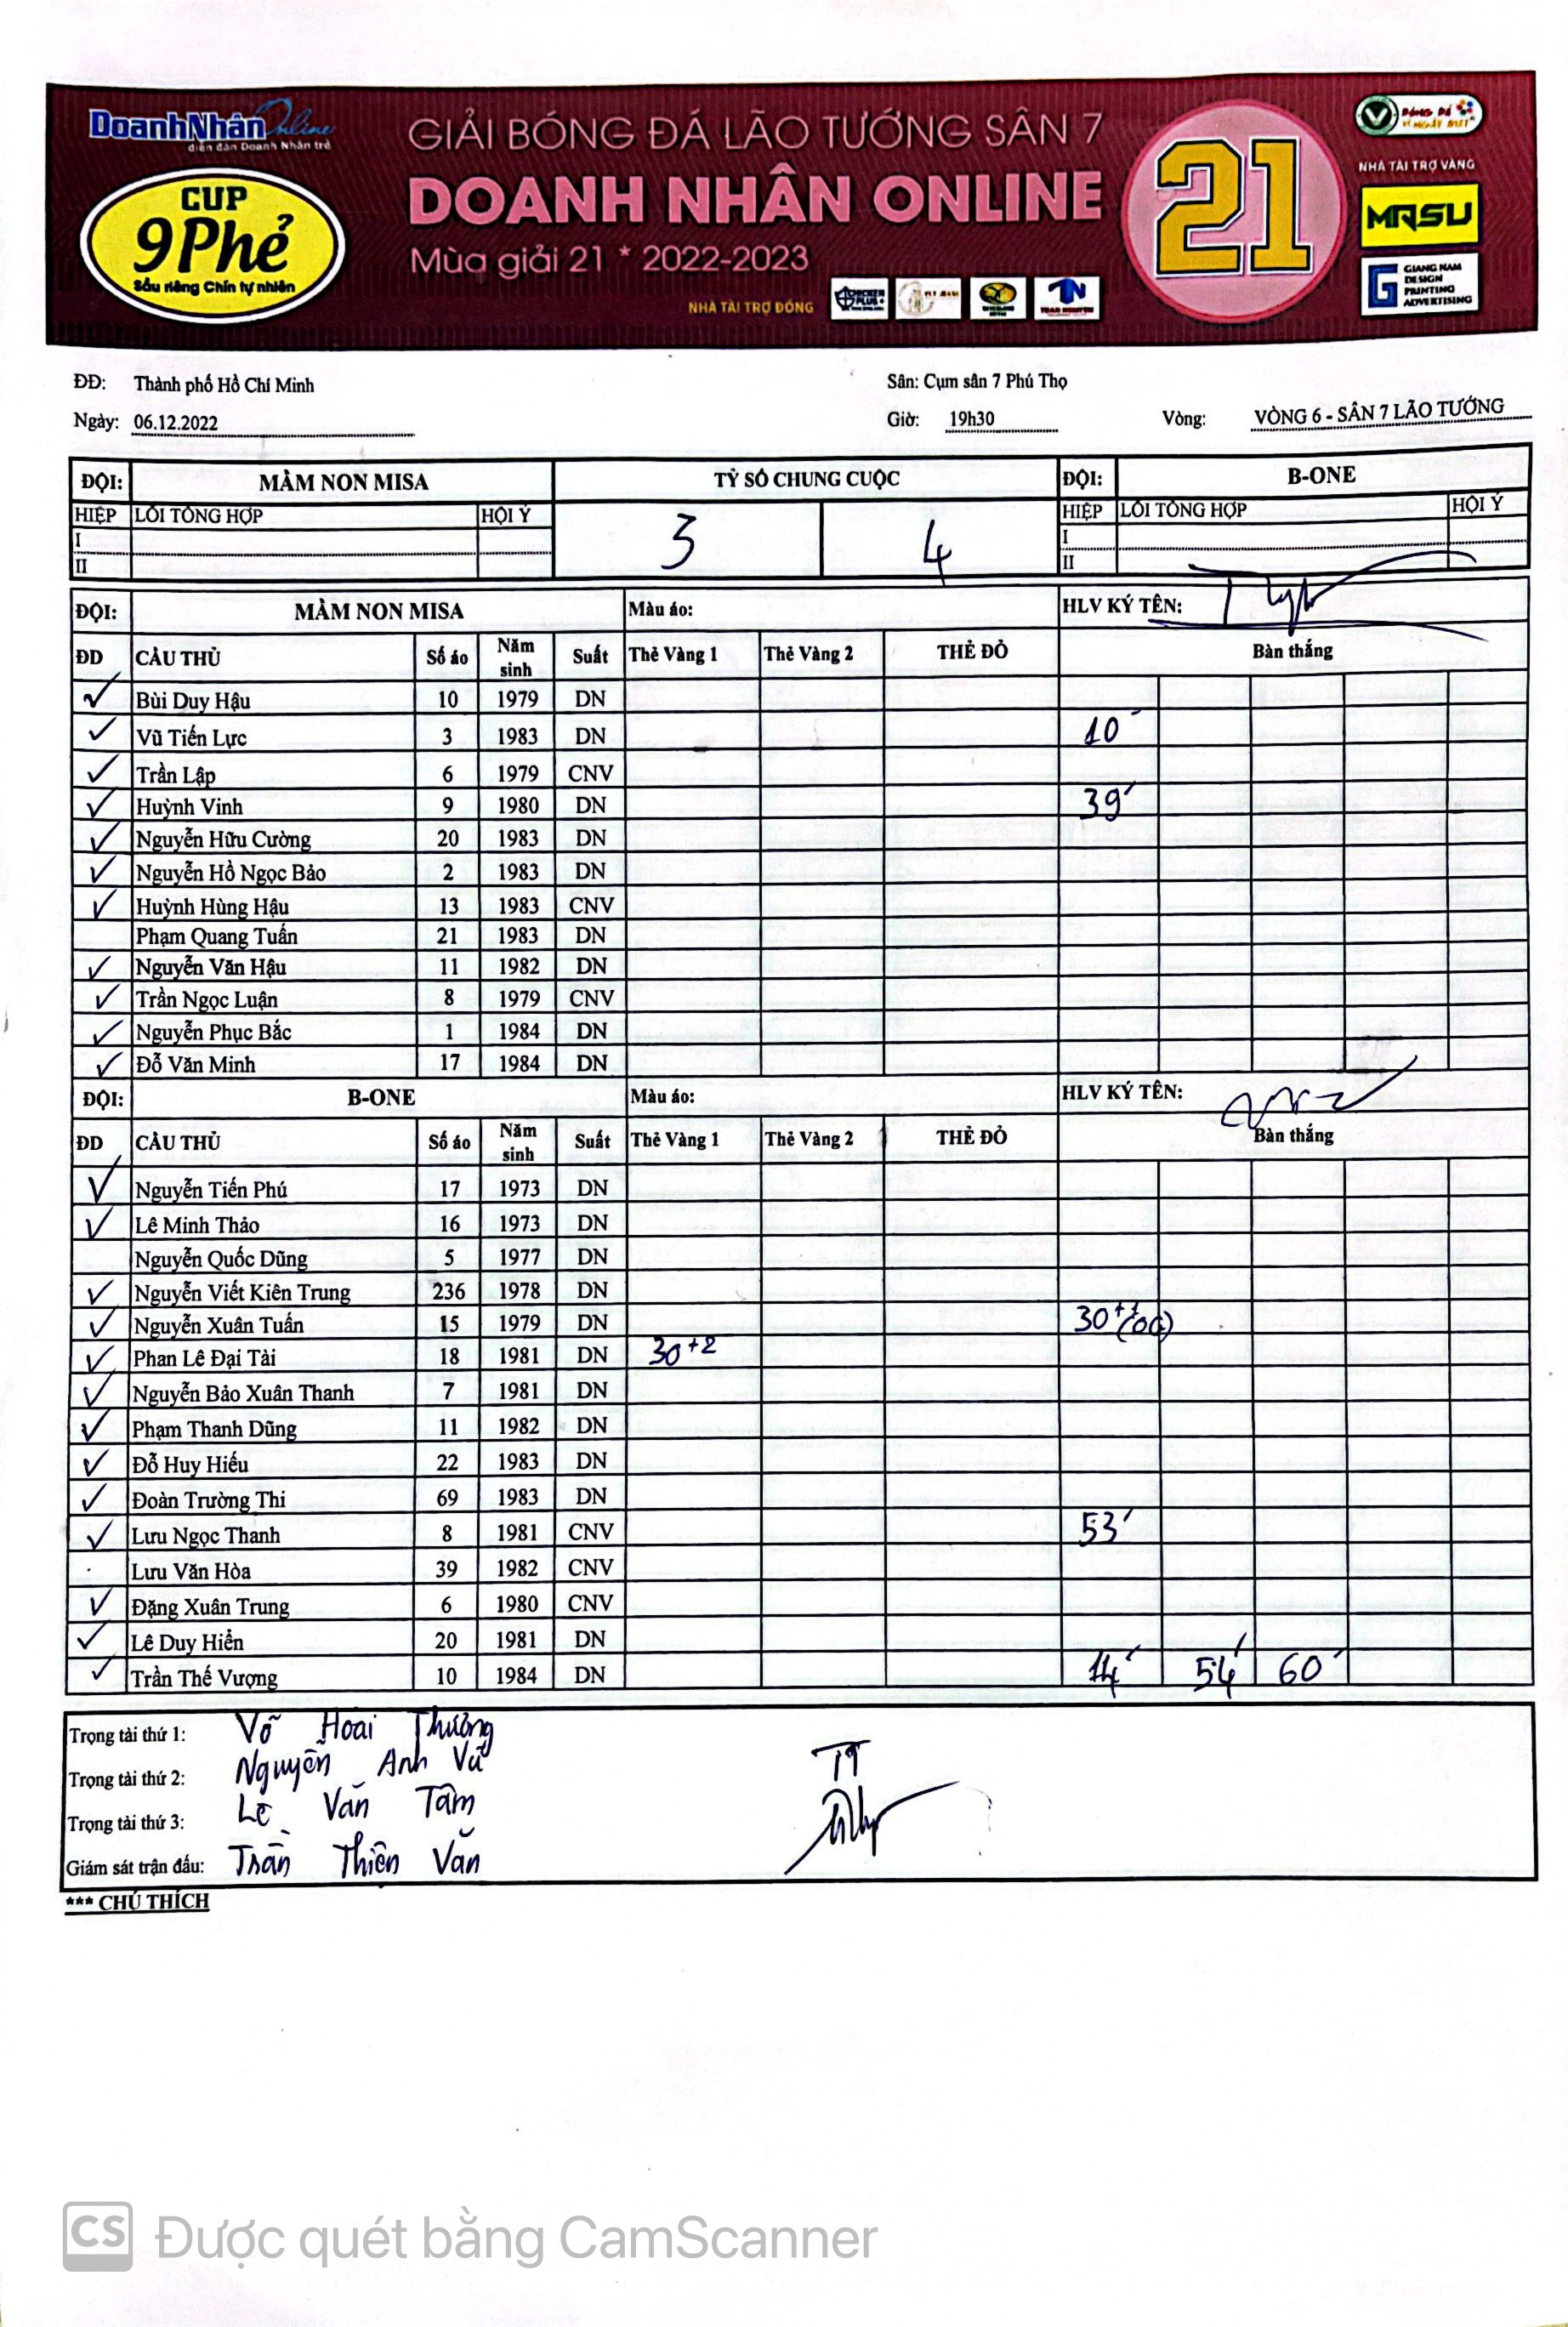 DoanhNhân Online
diễn đàn Doanh Nhân trẻ
CUP
9Phẻ
Sầu riêng Chín tự nhiên
GIẢI BÓNG ĐÁ LÃO TƯỚNG SÂN 7
DOANH NHÂN ONLINE
Mùa giải 21 * 2022-2023
21
NHÀ TÀI TRỢ VÀNG
MASU
GIANG NAM
DESIGN
PRINTING
ADVERTISING
NHÀ TÀI TRỢ ĐỒNG
CHICKEN PLUS+
TN
TOAN NGUYEN
ĐĐ: Thành phố Hồ Chí Minh Sân: Cụm sân 7 Phú Thọ
Ngày: 06.12.2022 Giờ: 19h30 Vòng: VÒNG 6 - SÂN 7 LÃO TƯỚNG
ĐỘI: MẦM NON MISA TỶ SỐ CHUNG CUỘC ĐỘI: B-ONE
HIỆP LỖI TỔNG HỢP HỘI Ý 3 4 HIỆP LỖI TỔNG HỢP HỘI Ý
I I
II II
ĐỘI: MẦM NON MISA Màu áo: HLV KÝ TÊN:
ĐD CẦU THỦ Số áo Năm sinh Suất Thẻ Vàng 1 Thẻ Vàng 2 THẺ ĐỎ Bàn thắng
✓ Bùi Duy Hậu 10 1979 DN
✓ Vũ Tiến Lực 3 1983 DN 10'
✓ Trần Lập 6 1979 CNV
✓ Huỳnh Vinh 9 1980 DN 39'
✓ Nguyễn Hữu Cường 20 1983 DN
✓ Nguyễn Hồ Ngọc Bảo 2 1983 DN
✓ Huỳnh Hùng Hậu 13 1983 CNV
Phạm Quang Tuấn 21 1983 DN
✓ Nguyễn Văn Hậu 11 1982 DN
✓ Trần Ngọc Luận 8 1979 CNV
✓ Nguyễn Phục Bắc 1 1984 DN
✓ Đỗ Văn Minh 17 1984 DN
ĐỘI: B-ONE Màu áo: HLV KÝ TÊN:
ĐD CẦU THỦ Số áo Năm sinh Suất Thẻ Vàng 1 Thẻ Vàng 2 THẺ ĐỎ Bàn thắng
✓ Nguyễn Tiến Phú 17 1973 DN
✓ Lê Minh Thảo 16 1973 DN
Nguyễn Quốc Dũng 5 1977 DN
✓ Nguyễn Viết Kiên Trung 236 1978 DN
✓ Nguyễn Xuân Tuấn 15 1979 DN 30+1 (OG)
✓ Phan Lê Đại Tài 18 1981 DN 30+2
✓ Nguyễn Bảo Xuân Thanh 7 1981 DN
✓ Phạm Thanh Dũng 11 1982 DN
✓ Đỗ Huy Hiếu 22 1983 DN
✓ Đoàn Trường Thi 69 1983 DN
✓ Lưu Ngọc Thanh 8 1981 CNV 53'
Lưu Văn Hòa 39 1982 CNV
✓ Đặng Xuân Trung 6 1980 CNV
✓ Lê Duy Hiển 20 1981 DN
✓ Trần Thế Vượng 10 1984 DN 14' 54' 60'
Trọng tài thứ 1: Võ Hoài Thương
Trọng tài thứ 2: Nguyễn Anh Vũ
Trọng tài thứ 3: Lê Văn Tâm
Giám sát trận đấu: Trần Thiện Văn
TT
*** CHÚ THÍCH
CS Được quét bằng CamScanner